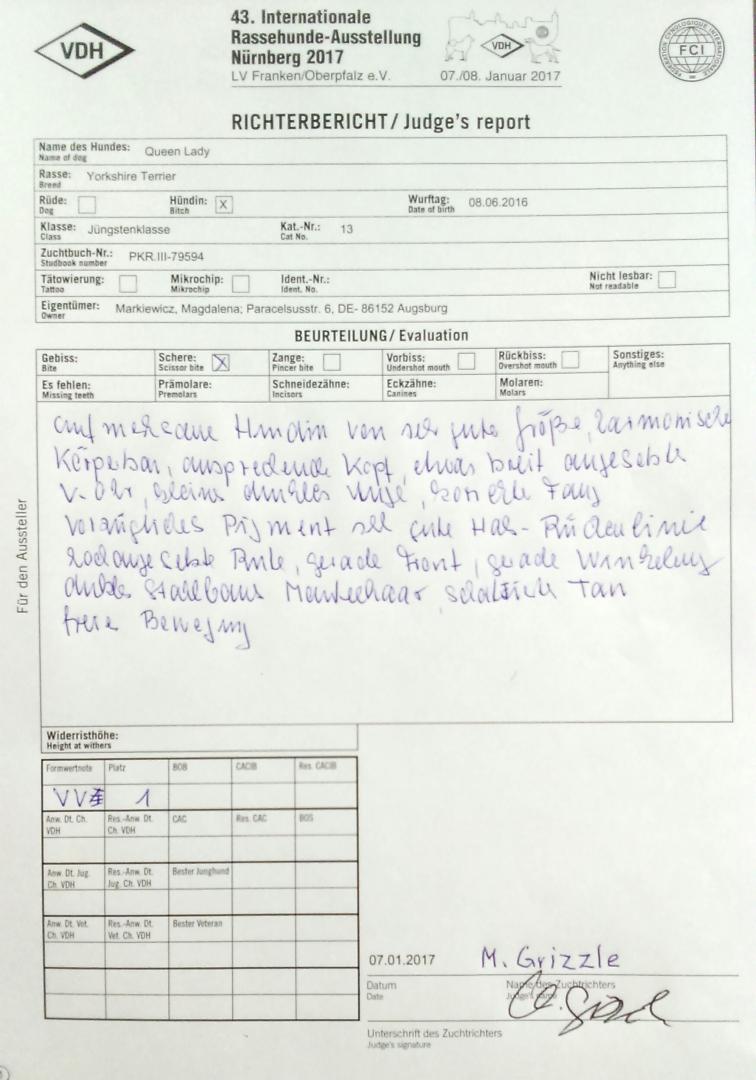 VDH
43. Internationale
Rassehunde-Ausstellung
Nürnberg 2017
LV Franken/Oberpfalz e.V.
VDH
07./08. Januar 2017
FEDERATION CYNOLOGIQUE INTERNATIONALE
FCI
RICHTERBERICHT/Judge's report
Name des Hundes: Queen Lady
Name of dog
Rasse: Yorkshire Terrier
Breed
Rüde: Hündin: X Wurftag: 08.06.2016
Dog Bitch Date of birth
Klasse: Jüngstenklasse Kat.-Nr.: 13
Class Cat No.
Zuchtbuch-Nr.: PKR.III-79594
Studbook number
Tätowierung: Mikrochip: Ident.-Nr.: Nicht lesbar:
Tattoo Mikrochip Ident. No. Not readable
Eigentümer: Markiewicz, Magdalena; Paracelsusstr. 6, DE- 86152 Augsburg
Owner
BEURTEILUNG/Evaluation
Gebiss: Schere: X Zange: Vorbiss: Rückbiss: Sonstiges:
Bite Scissor bite Pincer bite Undershot mouth Overshot mouth Anything else
Es fehlen: Prämolare: Schneidezähne: Eckzähne: Molaren:
Missing teeth Premolars Incisors Canines Molars
Für den Aussteller
Hündin von sehr gute Größe, harmonische
Körperbau, ansprechende Kopf, etwas breit angesetzte
V-Ohr, kleine dunkles Auge, korrekte Fang
vorzügliches Pigment sehr gute Hals-Rückenlinie
hochangesetzte Rute, gerade Front, gerade Winkelung
dunkles Stahlblaue Mantelhaar, Tan
freie Bewegung
Widerristhöhe:
Height at withers
Formwertnote Platz BOB CACIB Res. CACIB
VV 1
Anw. Dt. Ch. VDH Res.-Anw. Dt. Ch. VDH CAC Res. CAC BOS
Anw. Dt. Jug. Ch. VDH Res.-Anw. Dt. Jug. Ch. VDH Bester Junghund
Anw. Dt. Vet. Ch. VDH Res.-Anw. Dt. Vet. Ch. VDH Bester Veteran
07.01.2017 M. Grizzle
Datum Name des Zuchtrichters
Date Judge's name
Unterschrift des Zuchtrichters
Judge's signature